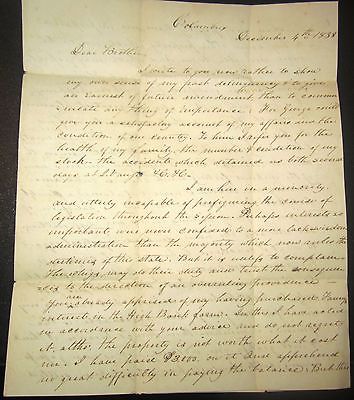 Columbus
December 4th 1838
Dear Brother
I write to you now rather to show
my own sense of my past delinquency & to give
an earnest of future amendment, than to commu
nicate any thing of importance. Mr George could
give you a satisfactory account of my affairs and the
condition of our country. To him I refer you for the
health of my family, the number & condition of my
stock. The accidents which detained us both several
days at &C. &C.
I am here in a minority
and utterly incapable of prefiguring the course of
legislation throughout the session. Perhaps interests so
important were never confided to a more lackwisdom
administration than the majority which now rules the
destinies of this state. But it is useless to complain
The whigs may do their duty and trust the consequen
ces to the direction of an overruling providence
You are already apprised of my having purchased
interest in the High Bank farm. In this I have acted
in accordance with your advice and do not regret
it, altho. the property is not worth what it cost
me. I have paid $3,000. on it and apprehend
no great difficulty in paying the balance. But this